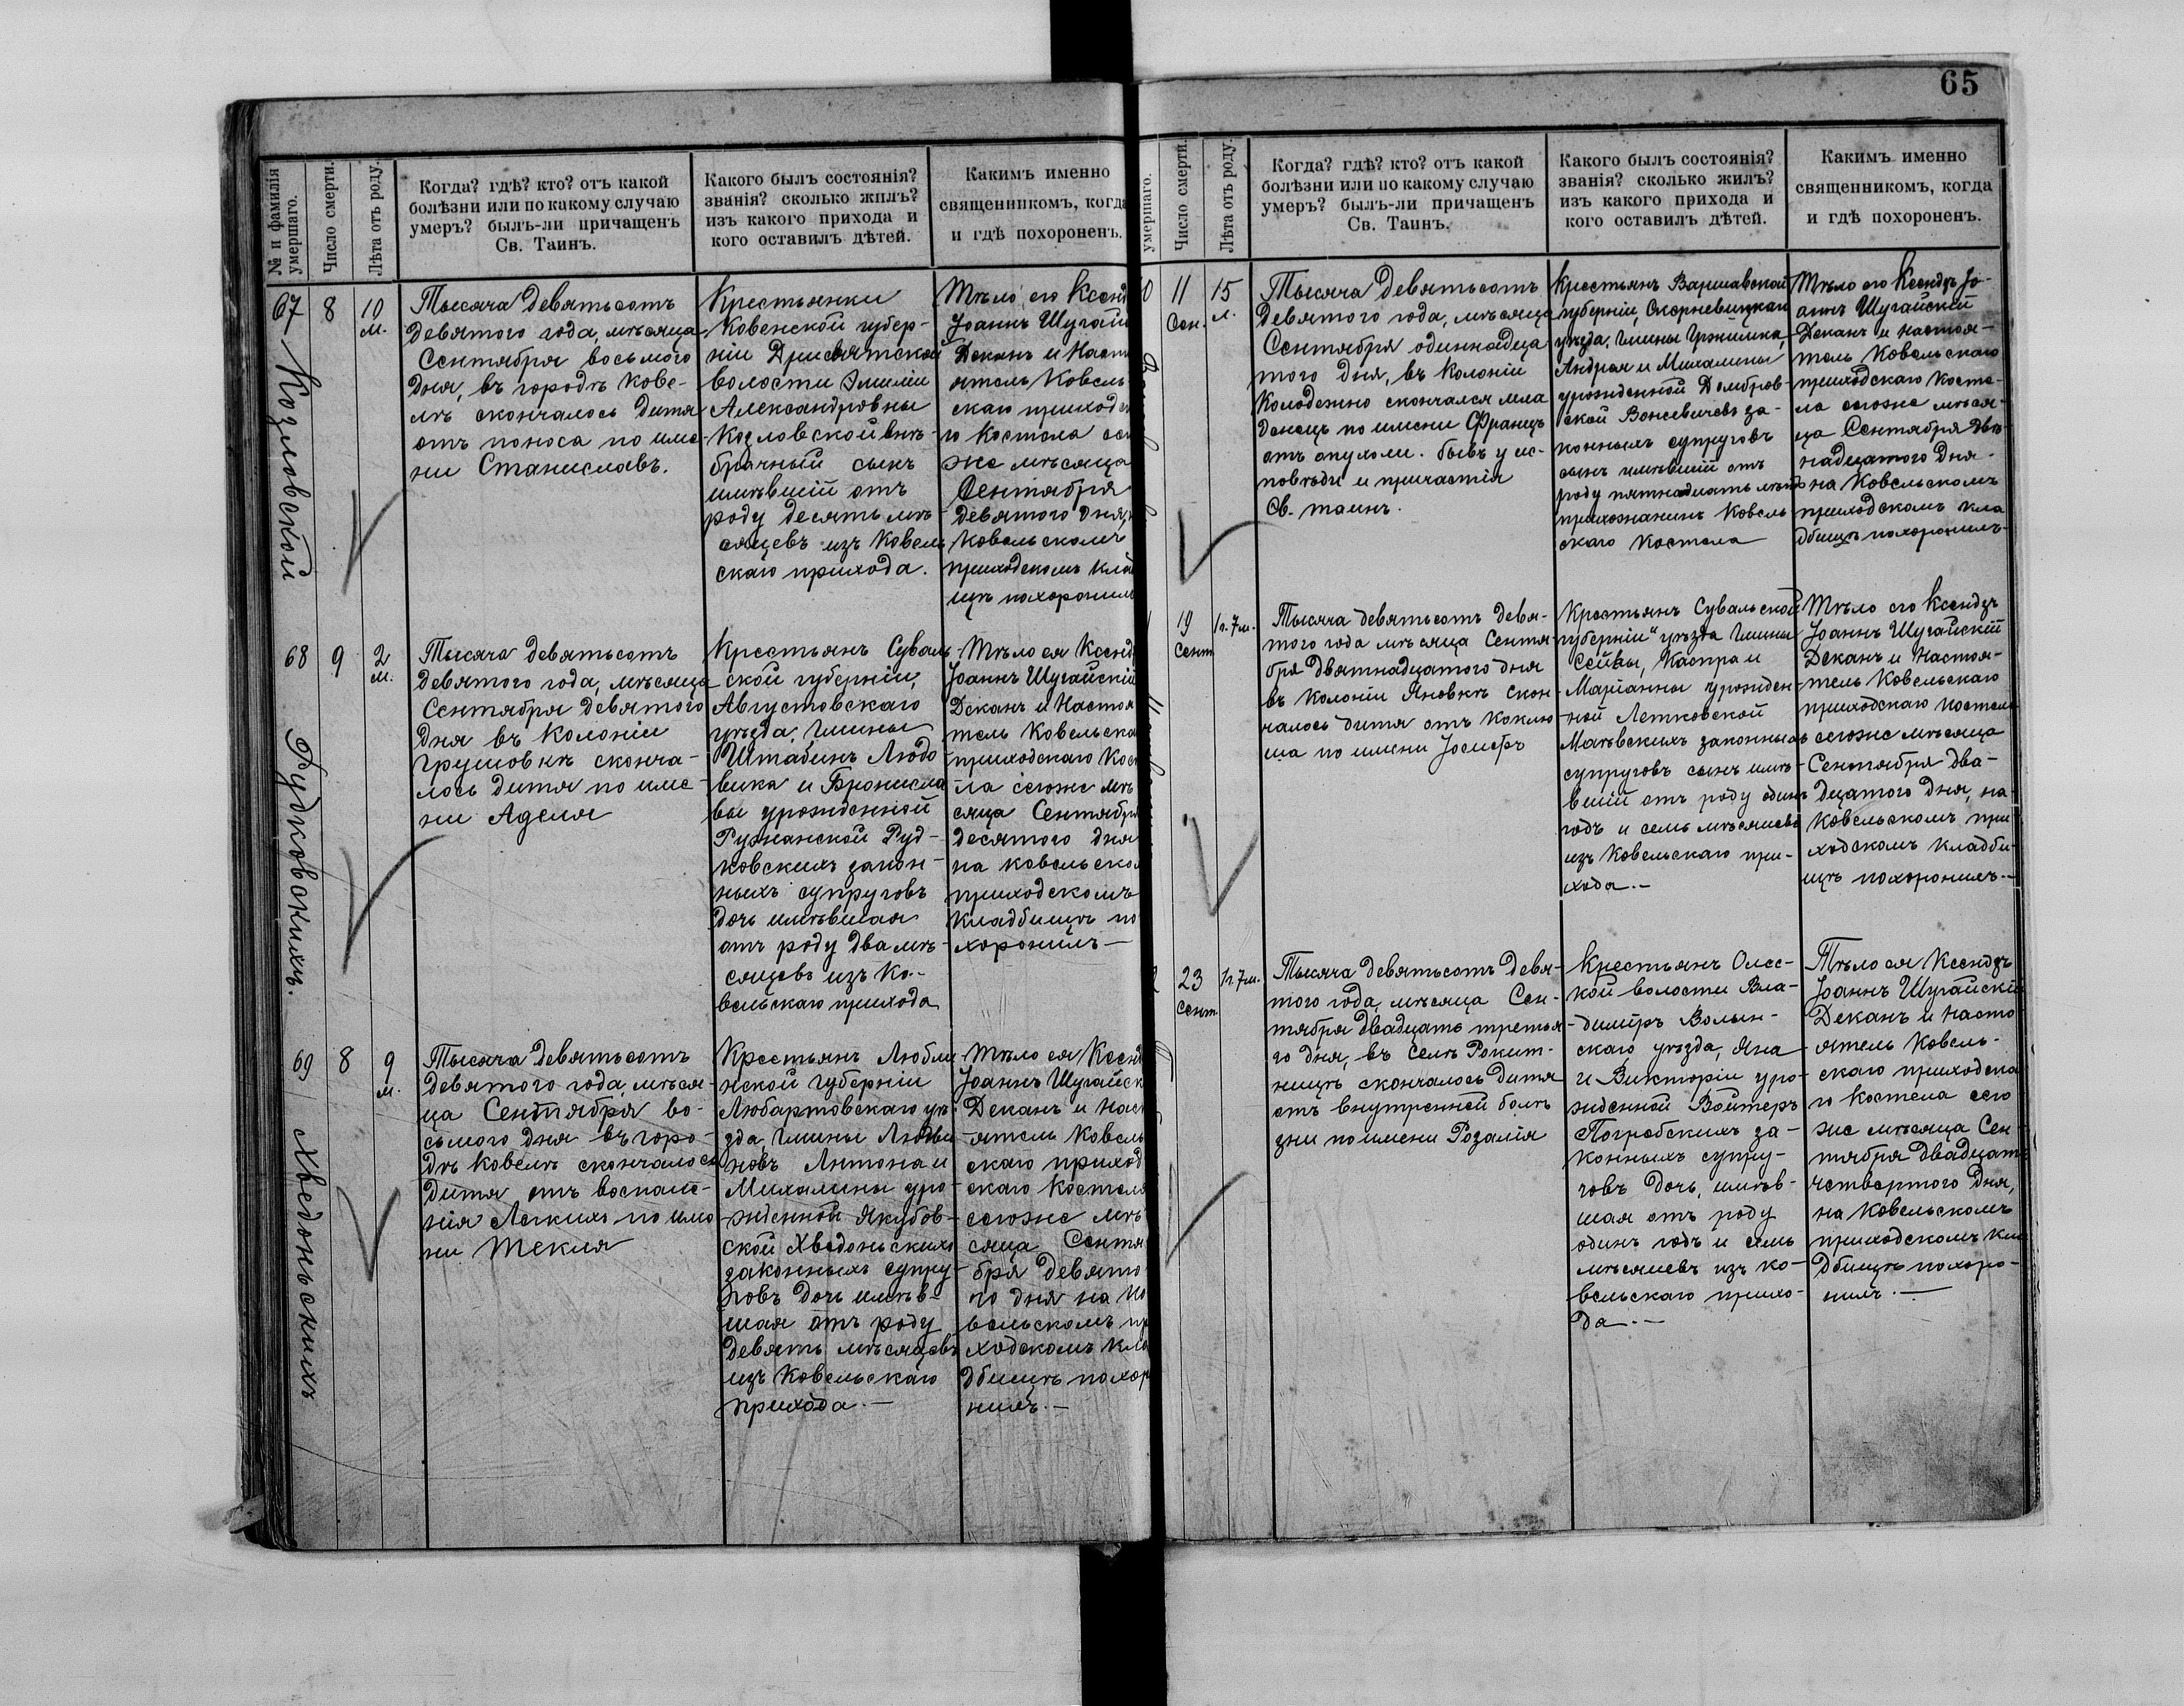 65
№ и фамилія
умершаго.
Число смерти.
Лѣта отъ роду.
Когда? гдѣ? кто? отъ какой
болѣзни или по какому случаю
умеръ? былъ-ли причащенъ
Св. Таинъ.
Какого былъ состоянія?
званія? сколько жилъ?
изъ какого прихода и
кого оставилъ дѣтей.
Какимъ именно
священникомъ, когда
и гдѣ похороненъ.
67
Козловской
8
10
м.
Тысяча девятьсотъ
девятого года, мѣсяца
Сентября восьмого
дня, въ городѣ Кове-
лѣ скончалось дитя
отъ поноса по име-
ни Станиславъ.
Крестьянки
Ковенской губер-
ніи Дрисвятской
волости Эмиліи
Александровны
Козловской внѣ-
брачный сынъ
имѣвшій отъ
роду десять мѣ-
сяцевъ изъ Ковель
скаго прихода.
Тѣло его Ксенд
Іоаннъ Шугай
Деканъ и Наст
ятель Ковель
скаго приходс
го Костела се
же мѣсяца
Сентября
девятого дня
Ковельскомъ
приходскомъ кла
щѣ похоронилъ
68
Рудковскихъ.
9
2
м.
Тысяча девятьсотъ
девятого года, мѣсяца
Сентября девятого
дня въ колоніи
Грушовкѣ сконча-
лось дитя по име-
ни Аделя
Крестьянъ Суваль
ской губерніи,
Августовскаго
уѣзда, гмины
Штабинъ Людо
вика и Бронисла
вы урожденной
Ружанской Руд-
ковскихъ закон-
ныхъ супруговъ
дочь имѣвшая
отъ роду два мѣ-
сяцевъ изъ Ко-
вельскаго прихода
Тѣло ея Ксенд
Іоаннъ Шугайскій
Деканъ и Настоя
тель Ковельска
приходскаго Кос
ла сегоже мѣ
сяца Сентября
десятого дня
на Ковельско
приходскомъ
кладбищѣ по
хоронилъ—
69
Хведоньскихъ
8
9
м.
Тысяча девятьсотъ
девятого года, мѣся-
ца Сентября во-
сьмого дня въ горо-
дѣ Ковелѣ скончалось
дитя отъ воспале-
нія легкихъ по име
ни Текля
Крестьянъ Любли
нской губерніи
Любартовскаго уѣ
зда, гмины Людви
новъ Антона и
Михалины уро-
жденной Якубов-
ской Хведоньскихъ
законныхъ супру-
говъ дочь имѣв-
шая отъ роду
девять мѣсяцевъ
изъ Ковельскаго
прихода.—
Тѣло ея Ксенд
Іоаннъ Шугайск
Деканъ и Наст
ятель Ковель
скаго приход
скаго Костела
сегоже мѣ
сяца Сентя
бря девято
го дня на Ко
вельскомъ пр
ходскомъ кла
дбищѣ похор
нилъ.—
умершаго.
Число смерти.
Лѣта отъ роду.
Когда? гдѣ? кто? отъ какой
болѣзни или по какому случаю
умеръ? былъ-ли причащенъ
Св. Таинъ.
Какого былъ состоянія?
званія? сколько жилъ?
изъ какого прихода и
кого оставилъ дѣтей.
Какимъ именно
священникомъ, когда
и гдѣ похороненъ.
0
11
Сен.
15
л.
Тысяча девятьсотъ
девятого года, мѣсяца
Сентября одиннадца
того дня, въ колоніи
Колодежно скончался мла
денецъ по имени Францъ
отъ опухоли. бывъ у ис-
повѣди и причастія
Св. таинъ.
Крестьянъ Варшавской
губерніи, Скерневицкаго
уѣзда, гмины
Андрея и Михалины
урожденной Домбров-
ской за-
конныхъ супруговъ
сынъ имѣвшій отъ
роду пятнадцать лѣтъ
прихожанинъ Ковель
скаго Костела
Тѣло его Ксендзъ Іо-
аннъ Шугайскій
Деканъ и Настоя-
тель Ковельскаго
приходскаго Косте-
ла сегоже мѣся-
ца Сентября две-
надцатого дня
на Ковельскомъ
приходскомъ кла
дбищѣ похоронилъ-
19
Сент
1г. 7м.
Тысяча девятьсотъ девя-
того года мѣсяца Сентя-
бря девятнадцатого дня
въ колоніи Яновкѣ скон
чалось дитя отъ коклю
ша по имени Іосифъ
Крестьянъ Сувальской
губерніи " уѣзда гмины
Сейвы, Каспра и
Маріанны урожден-
ной Летковской
Маѣвскихъ законныхъ
супруговъ сынъ имѣ-
вшій отъ роду одинъ
годъ и семь мѣсяцевъ
изъ Ковельскаго при-
хода.—
Тѣло его Ксендзъ
Іоаннъ Шугайскій
Деканъ и Настоя-
тель Ковельскаго
приходскаго Костела
сегоже мѣсяца
Сентября два-
дцатого дня, на
Ковельскомъ при
ходскомъ кладби-
щѣ похоронилъ.—
23
Сент.
1г. 7м.
Тысяча девятьсотъ девя-
того года, мѣсяца Сен-
тября двадцать третья
го дня, въ селѣ Рокит-
ницѣ скончалось дитя
отъ внутренней болѣ
зни по имени Розалія
Крестьянъ Олес-
кой волости Вла-
диміръ Волын-
скаго уѣзда, Яна
и Викторіи уро-
жденной Войтеръ
Погребскихъ за-
конныхъ супру-
говъ дочь, имѣв-
шая отъ роду
одинъ годъ и семь
мѣсяцевъ изъ Ко-
вельскаго прихо-
да.—
Тѣло ея Ксендзъ
Іоаннъ Шугайскій
Деканъ и Насто
ятель Ковель-
скаго приходска
го Костела сего
же мѣсяца Сен-
тября двадцать
четвертого дня,
на Ковельскомъ
приходскомъ кла
дбищѣ похоро-
нилъ.—